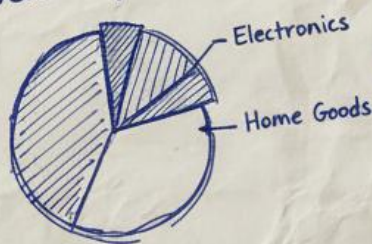 Electronics
Home Goods